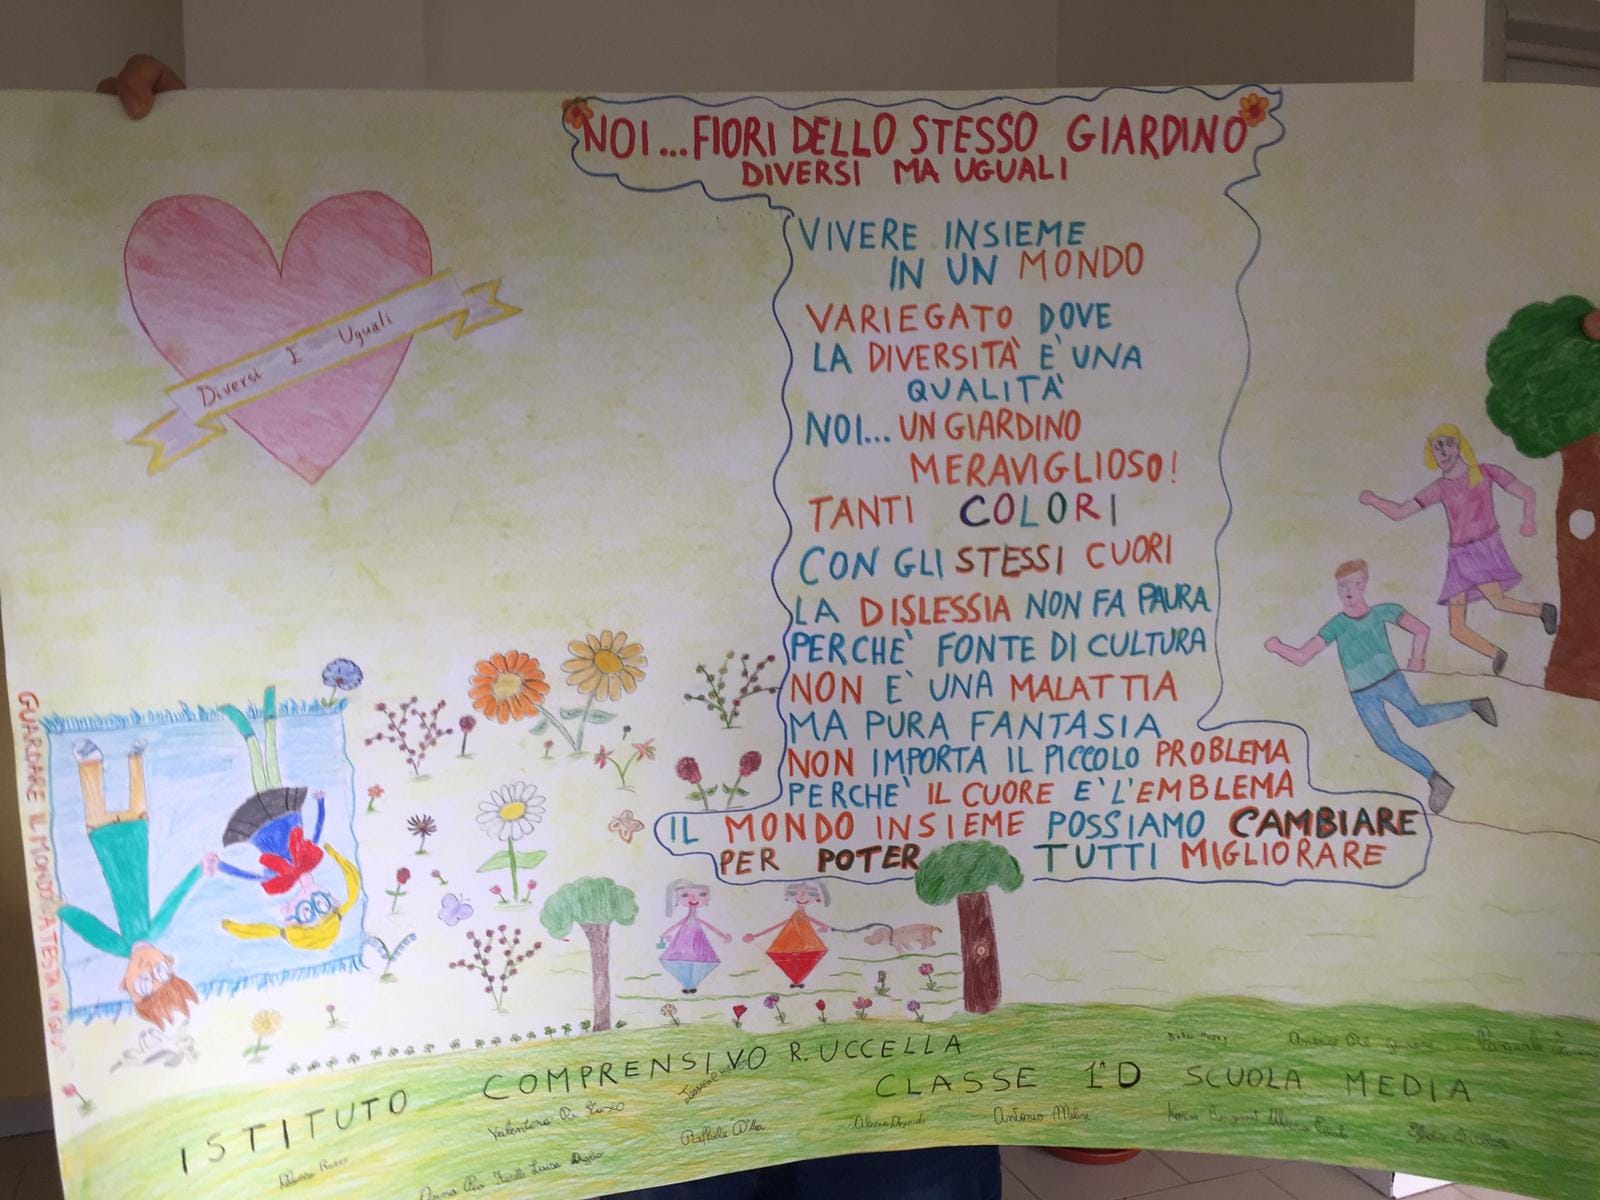 NOI...FIORI DELLO STESSO GIARDINO
DIVERSI MA UGUALI
Diversi E Uguali
VIVERE INSIEME
IN UN MONDO
VARIEGATO DOVE
LA DIVERSITÀ E' UNA
QUALITÀ
NOI... UN GIARDINO
MERAVIGLIOSO!
TANTI COLORI
CON GLI STESSI CUORI
LA DISLESSIA NON FA PAURA
PERCHE' FONTE DI CULTURA
NON E' UNA MALATTIA
MA PURA FANTASIA
NON IMPORTA IL PICCOLO PROBLEMA
PERCHE' IL CUORE E' L'EMBLEMA
IL MONDO INSIEME POSSIAMO CAMBIARE
PER POTER TUTTI MIGLIORARE
GUARDARE IL MONDO A TESTA IN GIU'
ISTITUTO COMPRENSIVO R. UCCELLA
CLASSE 1°D SCUOLA MEDIA
Valentina
Raffaele
Antonio
Anna Pia Luisa